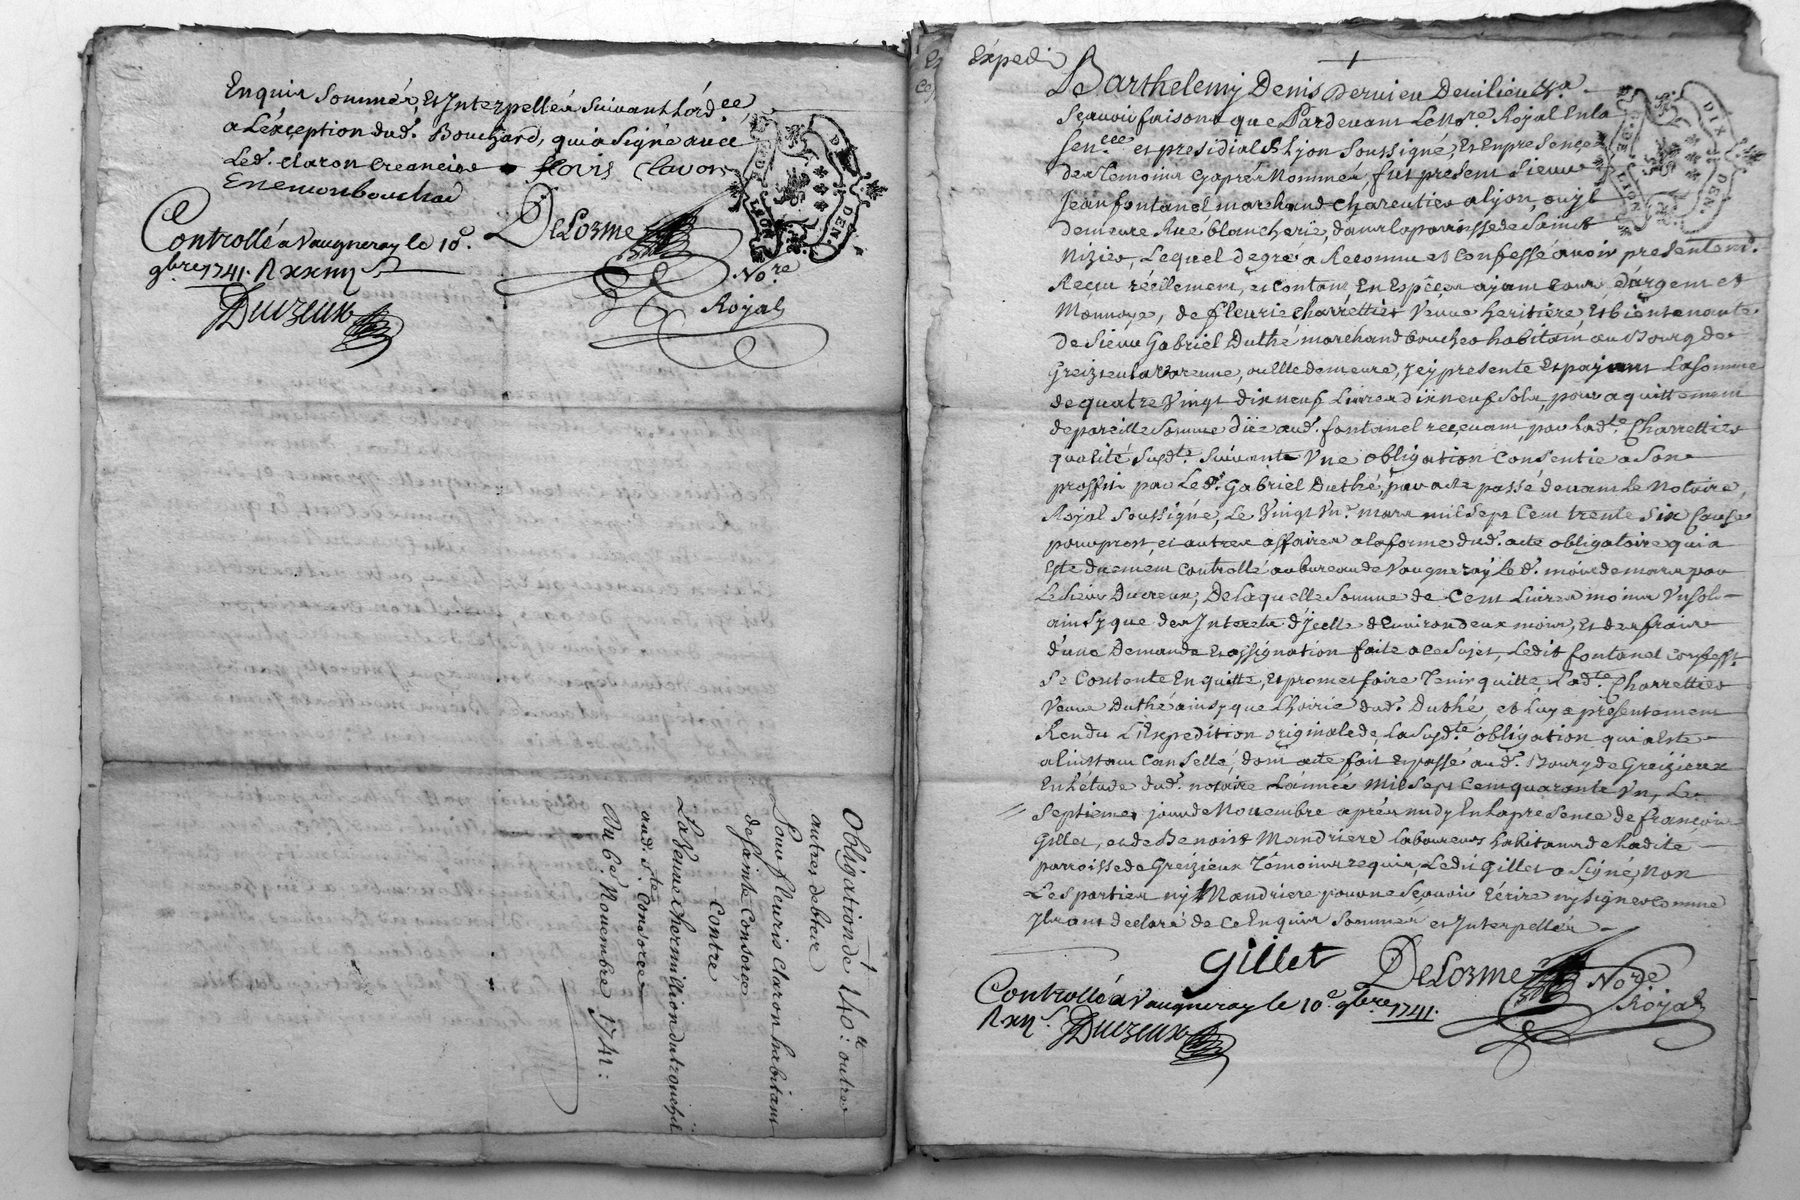 Enquis sommés, Et Interpellés suivant Lord.ce
a L'éxception dud. Bouchard, qui a signé avec
Led. claron creancier flouis Clavon
Enemonbouchad
Controllé a Vaugneray le 10e.
9bre 1741. Rxxiiij s.
Duczeux
DeLorme
No.re
Royal
Obligation de 140.tt outres
autres debtve
Sour fleuris Claron habitant
de sainte Consorce
Contre
La Veuve Chermillion du trouchel
aud. s.te Consorce
Du 6e. Nouembre 1741:
Expedié
Barthelemy Denis Dervieu Devilieu &a.
Sçavoir faisons que Pardevant Le No.re Royal En la
sen.cée et presidial de Lyon soussigné, Et En presence
des Témoins cy aprés Nommés, fut present Sieur
Jean fontanel marchand charcutier a lyon, ou y
demeure Rüe blancherie, dans la parroisse de Saint
Nizier, Lequel de gré a Reconnu et confessé avoir presentem.t
Reçeu réellement, et contant En Espéces ajant cour, d'argent et
Monnoye, de fleurie Charrettier Veuve heritiére, Et bientenante
de Sieur Gabriel Duthé marchand boucher habitant au Bourg de
Greizieu la Varenne, ou Elle demeure, Icy presente Et payant La somme
de quatre Vingt dix neuf Livres dix neuf sols, pour aquittement
de pareille somme düe aud. fontanel reçevant, par lad.te Charrettier
qualité susd.te suivante Vne obligation consentie a son
proffit par Led. Gabriel Duthé, par acte passé devant Le Notaire,
Royal soussigné, Le Vingt Vn.e mars mil sept Cent trente six Causé
pour prest, et autres affaires a la forme dud. acte obligatoire qui a
Esté duement controllé au bureau de Vaugneray Led. mois de mars par
Le Sieur Ducreux; De laquelle somme de Cent Livres moins Vn sol
ainsy que des Interets d'Jcelle d'Environ deux mois, Et des frais
d'une Demande Et assignation faite a ce sujet, Ledit fontanel confess.t
Se Contente En quitte, Et promet faire Tenir quitte Lad.te Charrettier
Veuve Duthé ainsy que L'hoirie dud. Duthé, et Luy a presentement
Rendu L'Expedition originale de La susd.te obligation qui a Esté
a L'instant Cansellé, dont acte fait et passé aud. Bourg de Greizieux
En L'étude dud. notaire L'année Mil sept Cent quarante Vn, Le
septieme, jour de Nouembre aprés midy En la presence de françois
Gillet, et de Benoist Mandriere laboureurs habitans de Ladite
parroisse de Greizieux Témoins requis, Ledit Gillet a signé, Non
Les parties ny Mandriere pour ne sçavoir Ecrire ny signer comme
Ils ont declaré de ce Enquis sommés et Interpellés
Gillet
DeLorme
No.re
Royal
Controllé a Vaugneray le 10e 9bre 1741.
Rxij s. Duczeux